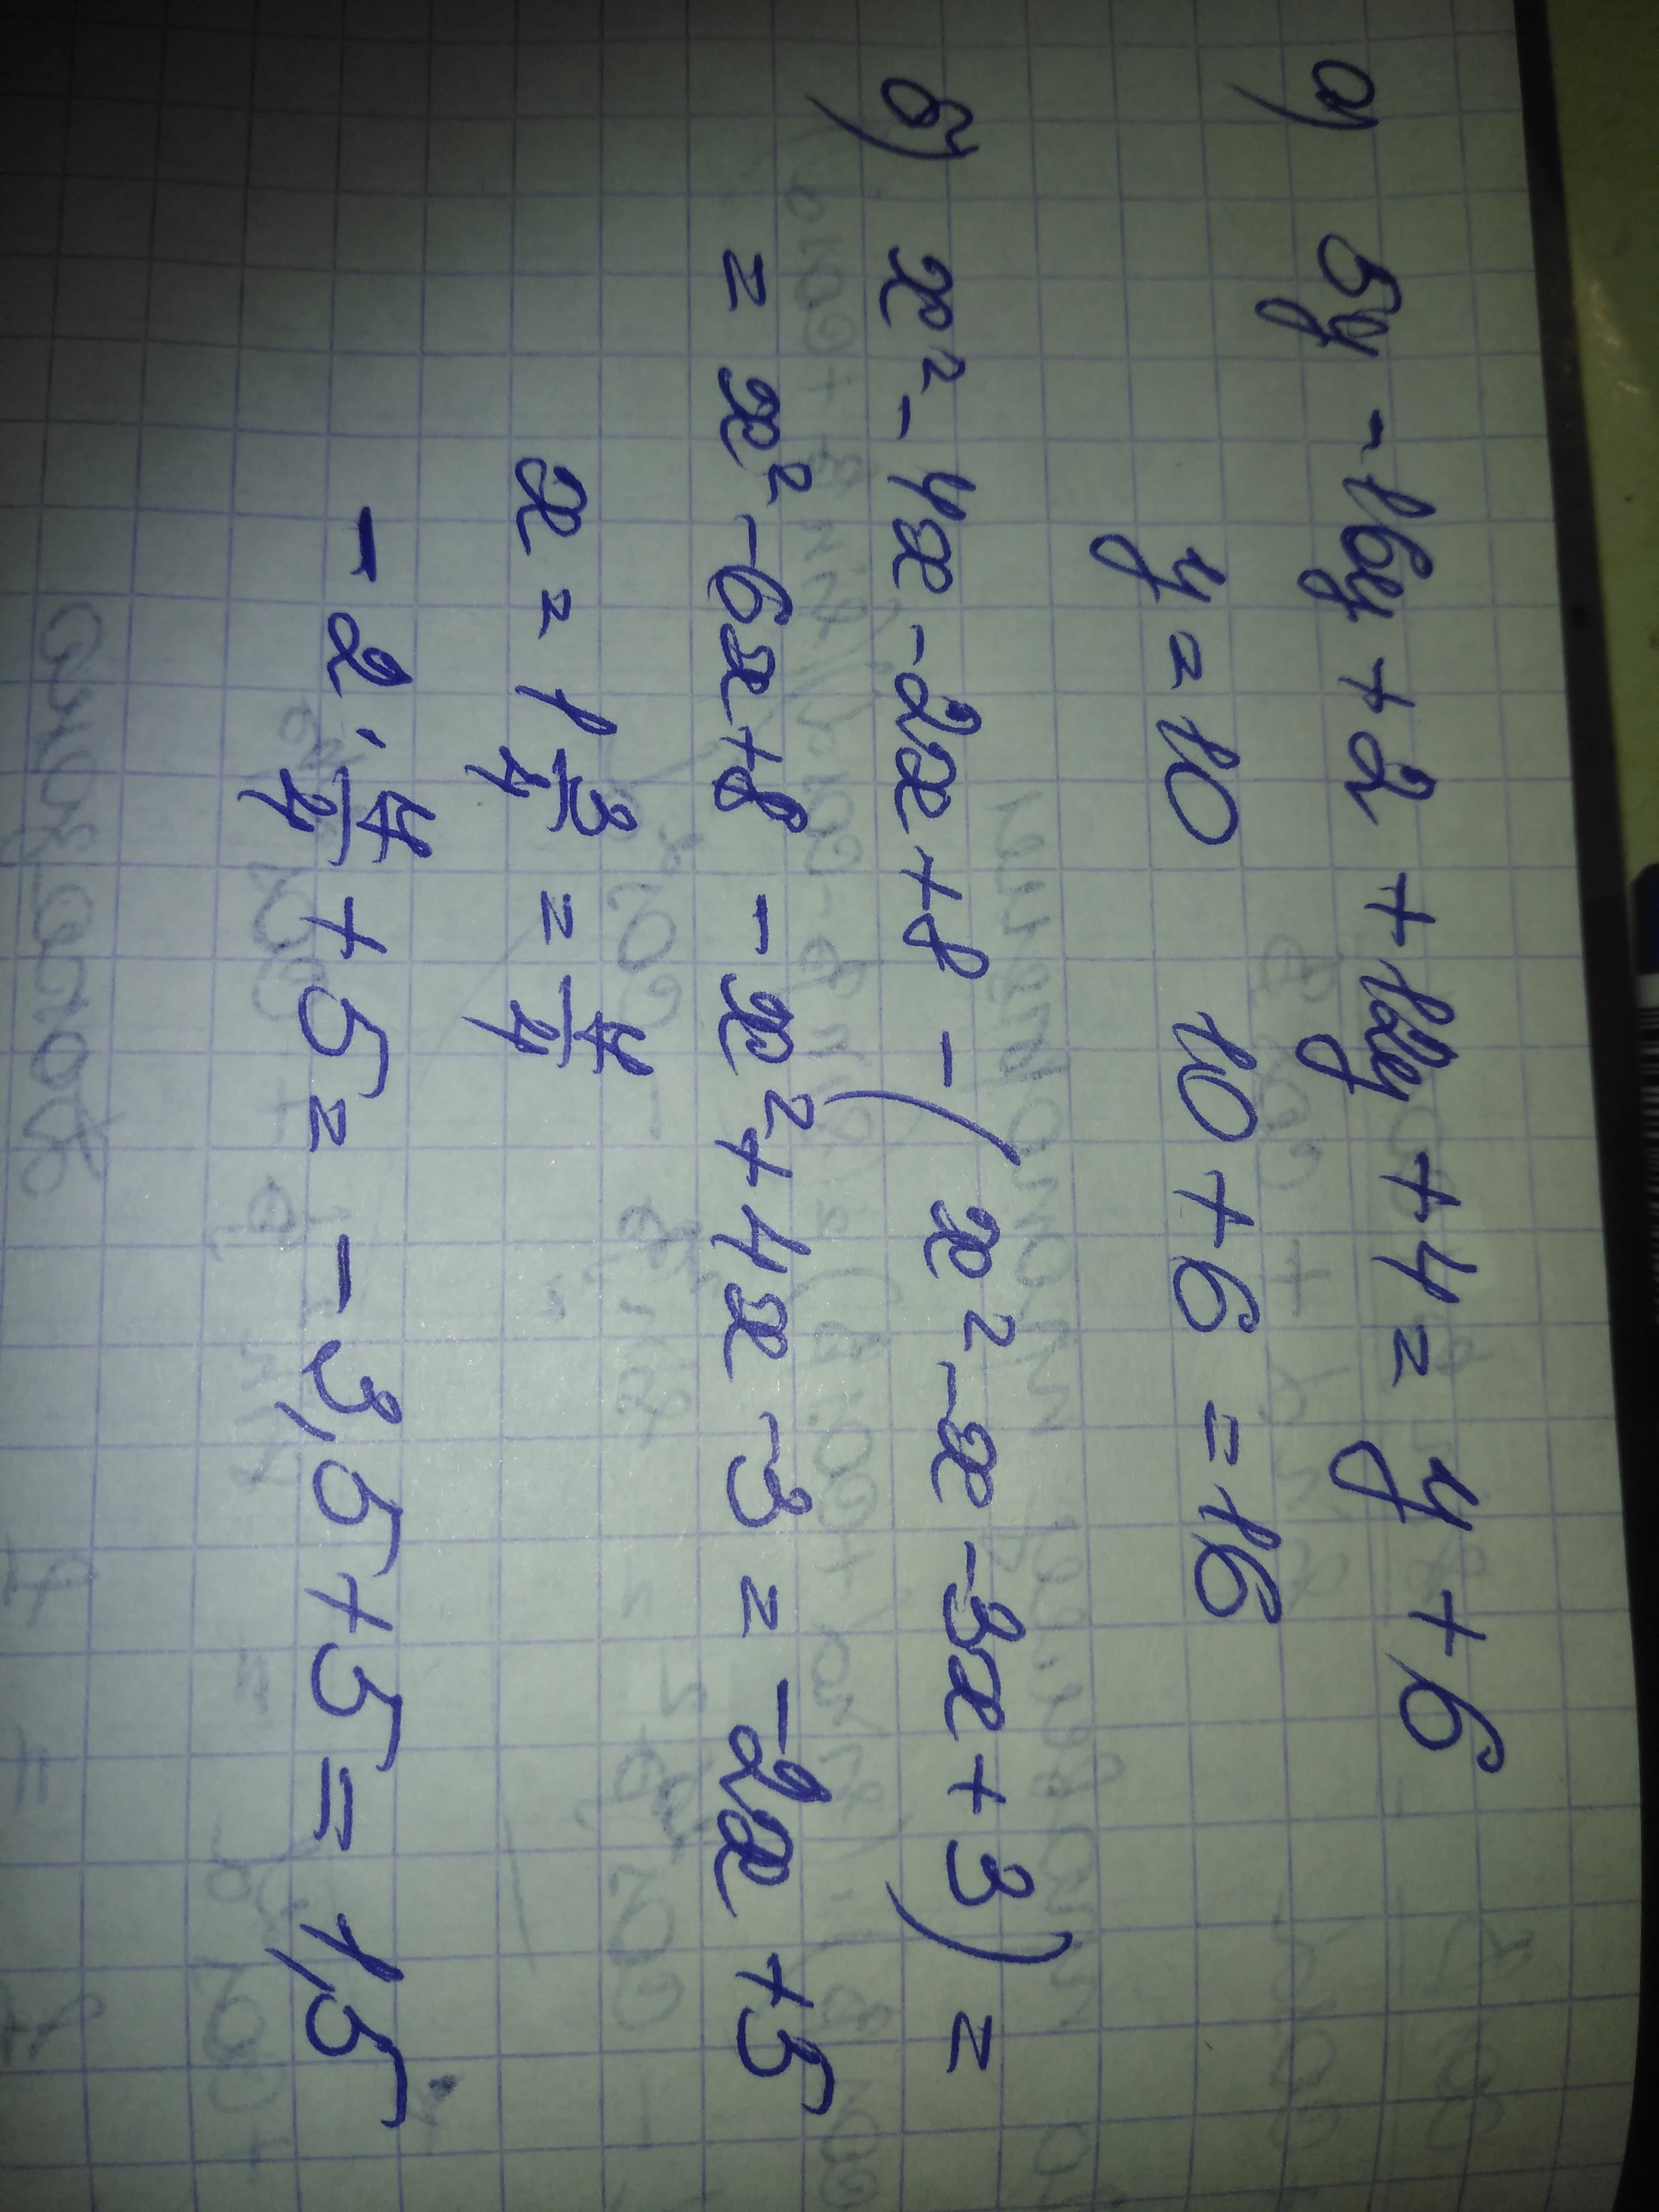 а) 5y - 16y + 2 + 12y + 4 = y + 6
y = 10 10 + 6 = 16
б) x² - 4x - 2x + 8 - (x² - x - 3x + 3) =
= x² - 6x + 8 - x² + 4x - 3 = -2x + 5
x = 1 3/4 = 7/4
- 2 · 7/4 + 5 = - 3,5 + 5 = 1,5